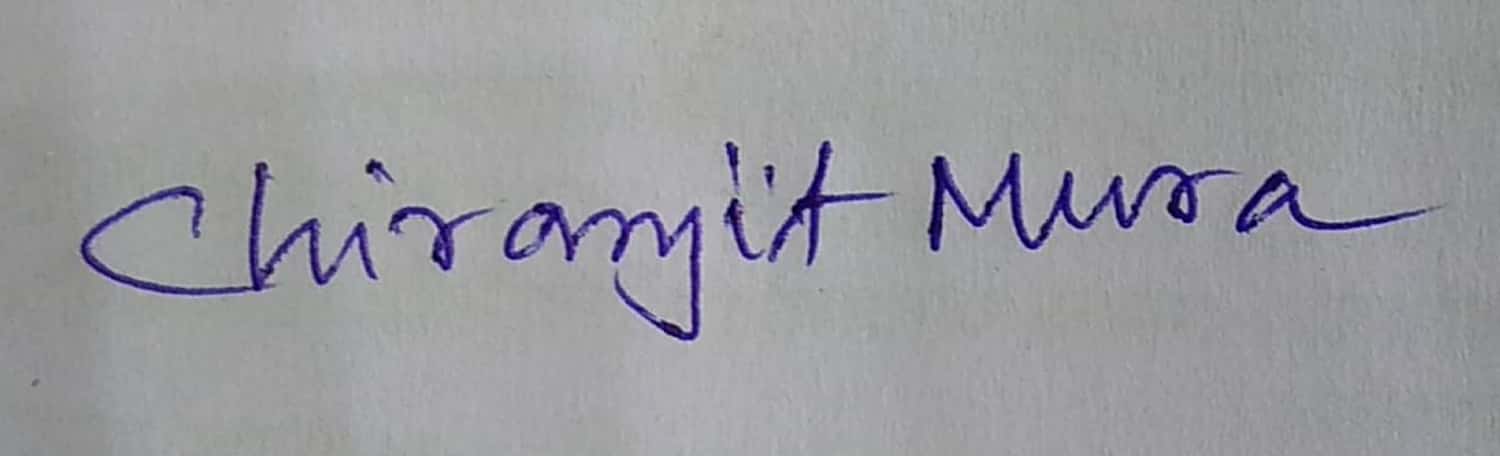 Chiranjit Mura